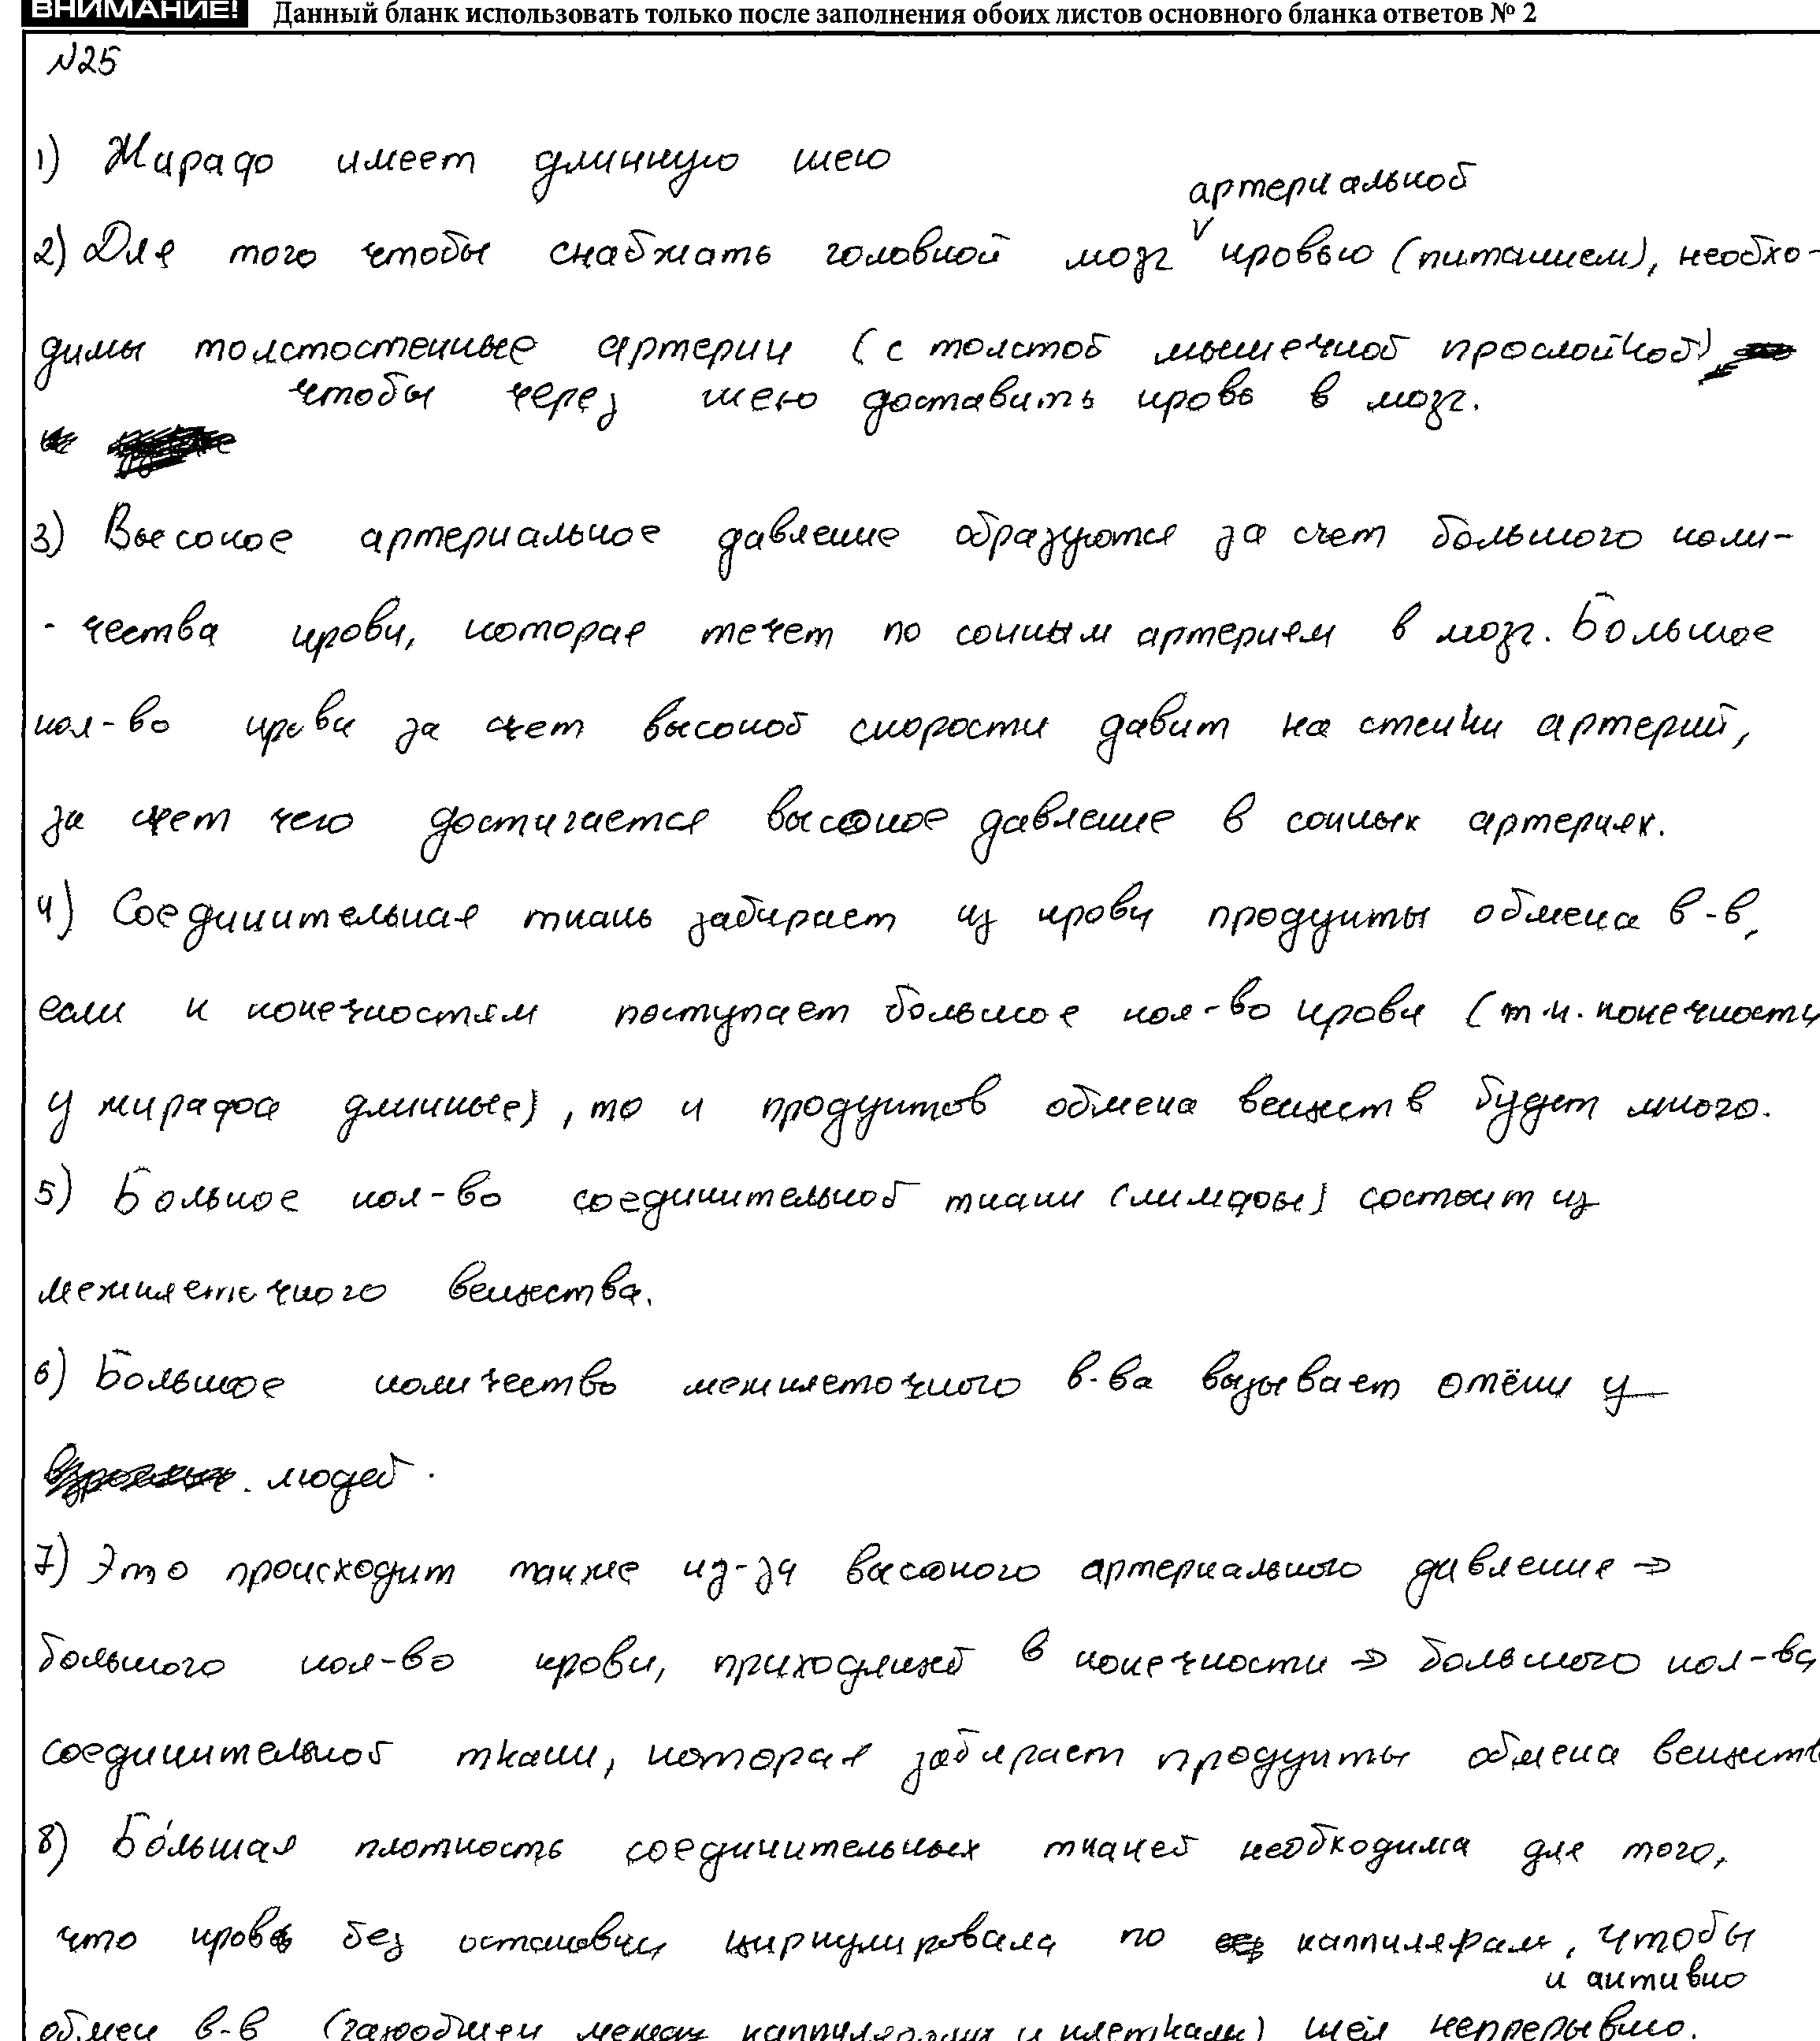 ВНИМАНИЕ! Данный бланк использовать только после заполнения обоих листов основного бланка ответов № 2
№25
1) Жираф имеет длинную шею
артериальной
2) Для того чтобы снабжать головной мозг кровью (питанием), необхо-
димы толстостенные артерии (с толстой мышечной прослойкой)
чтобы через шею доставить кровь в мозг.
3) Высокое артериальное давление образуются за счет большого коли-
-чества крови, которая течет по сонным артериям в мозг. Большое
кол-во крови за счет высокой скорости давит на стенки артерий,
за счет чего достигается высокое давление в сонных артериях.
4) Соединительная ткань забирает из крови продукты обмена в-в,
если к конечностям поступает большое кол-во крови (т.к. конечности
у жирафа длинные), то и продуктов обмена веществ будет много.
5) Больное кол-во соединительной ткани (лимфы) состоит из
межклеточного вещества.
6) Большое количество межклеточного в-ва вызывает отёки у
людей.
7) Это происходит также из-за высокого артериального давления ⇒
большого кол-во крови, приходящей в конечности ⇒ большого кол-ва
соединительной ткани, которая забирает продукты обмена веществ
8) Бо́льшая плотность соединительных тканей необходима для того,
что кровь без остановки циркулировала по каппилярам, чтобы
и активно
обмен в-в (газообмен между каппилярами и клетками) шёл непрерывно.